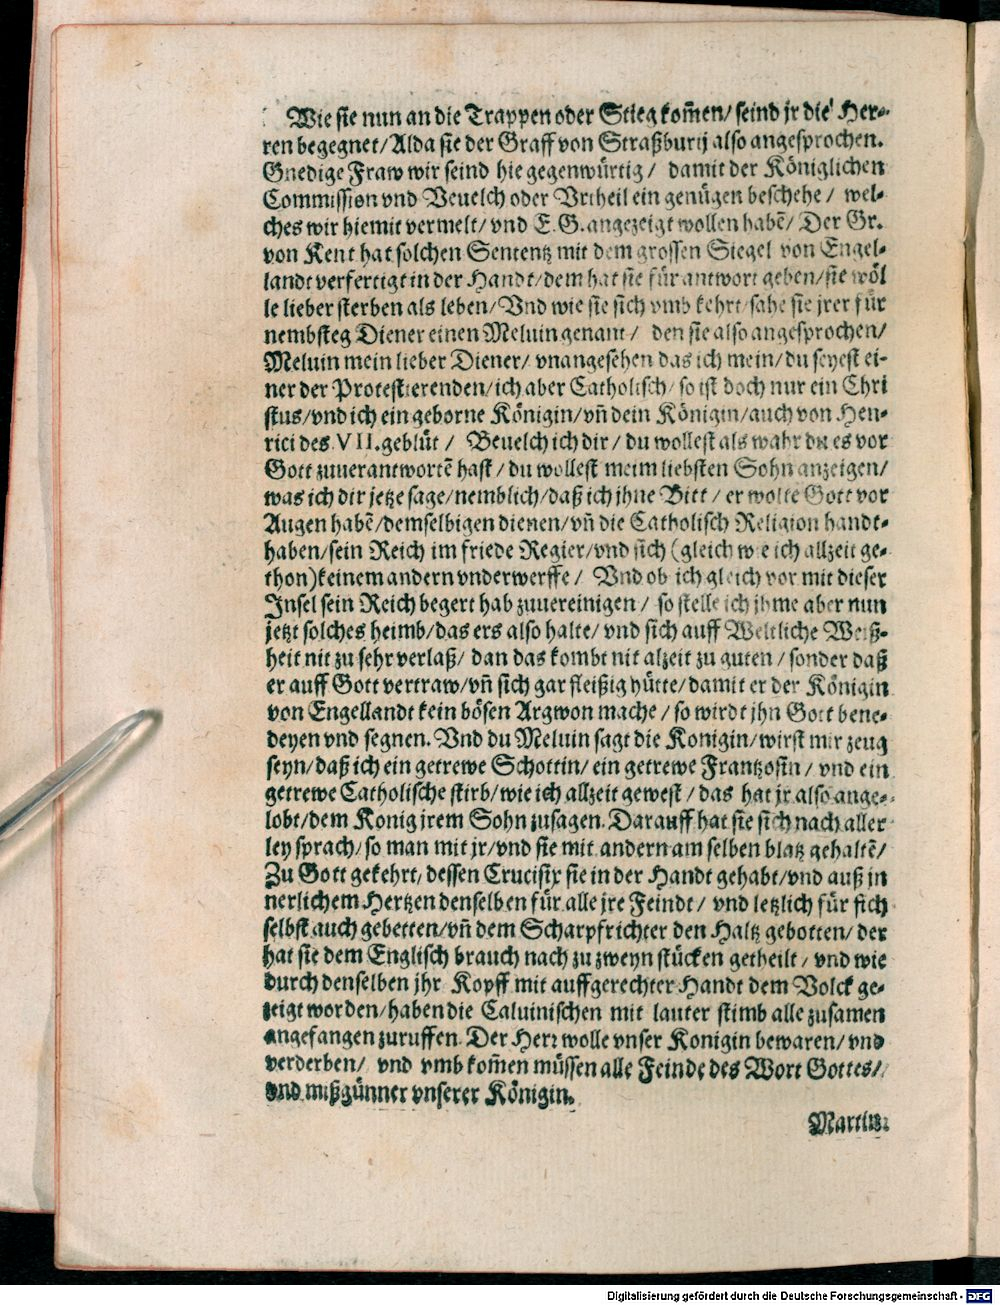 Wie sie nun an die Trappen oder Stieg kom̃en/ seind jr die Her-
ren begegnet/ Alda sie der Graff von Straßburij also angesprochen.
Gnedige Fraw wir seind hie gegenwürtig/ damit der Königlichen
Commission vnd Beuelch oder Vrtheil ein genügen beschehe/ wel-
ches wir hiemit vermelt/ vnd E. G. angezeigt wollen habẽ/ Der Gr.
von Kent hat solchen Sententz mit dem grossen Siegel von Engel-
landt verfertigt in der Handt/ dem hat sie für antwort geben/ sie wöl
le lieber sterben als leben/ Vnd wie sie sich vmb kehrt/ sahe sie jrer für
nembsteg Diener einen Meluin genant/ den sie also angesprochen/
Meluin mein lieber Diener/ vnangesehen das ich mein/ du seyest ei-
ner der Protestierenden/ ich aber Catholisch/ so ist doch nur ein Chri
stus/ vnd ich ein geborne Königin/ vñ dein Königin/ auch von Hen-
rici des VII. geblüt/ Beuelch ich dir/ du wollest als wahr du es vor
Gott zuuerantwortẽ hast/ du wollest meim liebsten Sohn anzeigen/
was ich dir jetze sage/ nemblich/ daß ich jhne Bitt/ er wolte Gott vor
Augen habẽ/ demselbigen dienen/ vñ die Catholisch Religion handt-
haben/ sein Reich im friede Regier/ vnd sich (gleich wie ich allzeit ge-
thon) keinem andern vnderwerffe/ Vnd ob ich gleich vor mit dieser
Insel sein Reich begert hab zuuereinigen/ so stelle ich jhme aber nun
jetzt solches heimb/ das ers also halte/ vnd sich auff Weltliche Weiß-
heit nit zu sehr verlaß/ dan das kombt nit alzeit zu guten/ sonder daß
er auff Gott vertraw/ vñ sich gar fleißig hütte/ damit er der Königin
von Engellandt kein bösen Argwon mache/ so wirdt jhn Gott bene-
deyen vnd segnen. Vnd du Meluin sagt die Konigin/ wirst mir zeug
seyn/ daß ich ein getrewe Schottin/ ein getrewe Frantzosin/ vnd ein
getrewe Catholische stirb/ wie ich allzeit gewest/ das hat jr also ange-
lobt/ dem Konig jrem Sohn zusagen. Darauff hat sie sich nach aller
ley sprach/ so man mit jr/ vnd sie mit andern am selben blatz gehaltẽ/
Zu Gott gekehrt/ dessen Crucifix sie in der Handt gehabt/ vnd auß in
nerlichem Hertzen denselben für alle jre Feindt/ vnd letzlich für sich
selbst auch gebetten/ vñ dem Scharpfrichter den Haltz gebotten/ der
hat sie dem Englisch brauch nach zu zweyn stücken getheilt/ vnd wie
durch denselben jhr Kopff mit auffgerechter Handt dem Volck ge-
zeigt worden/ haben die Caluinischen mit lauter stimb alle zusamen
angefangen zuruffen. Der Herr wolle vnser Konigin bewaren/ vnd
verderben/ vnd vmb kom̃en müssen alle Feinde des Wort Gottes/
vnd mißgünner vnserer Königin.
Martin:
Digitalisierung gefördert durch die Deutsche Forschungsgemeinschaft - DFG